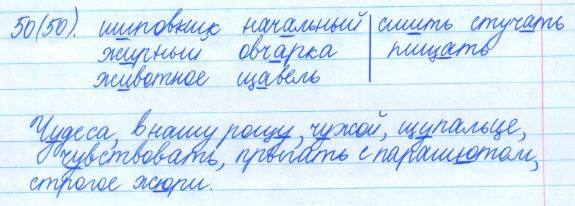 50(50). шиповник начальный | сшить стучать
жирный овчарка | пищать
животное щавель
Чудеса, в нашу рощу, чужой, щупальце,
чувствовать, прыгать с парашютом,
строгое жюри.